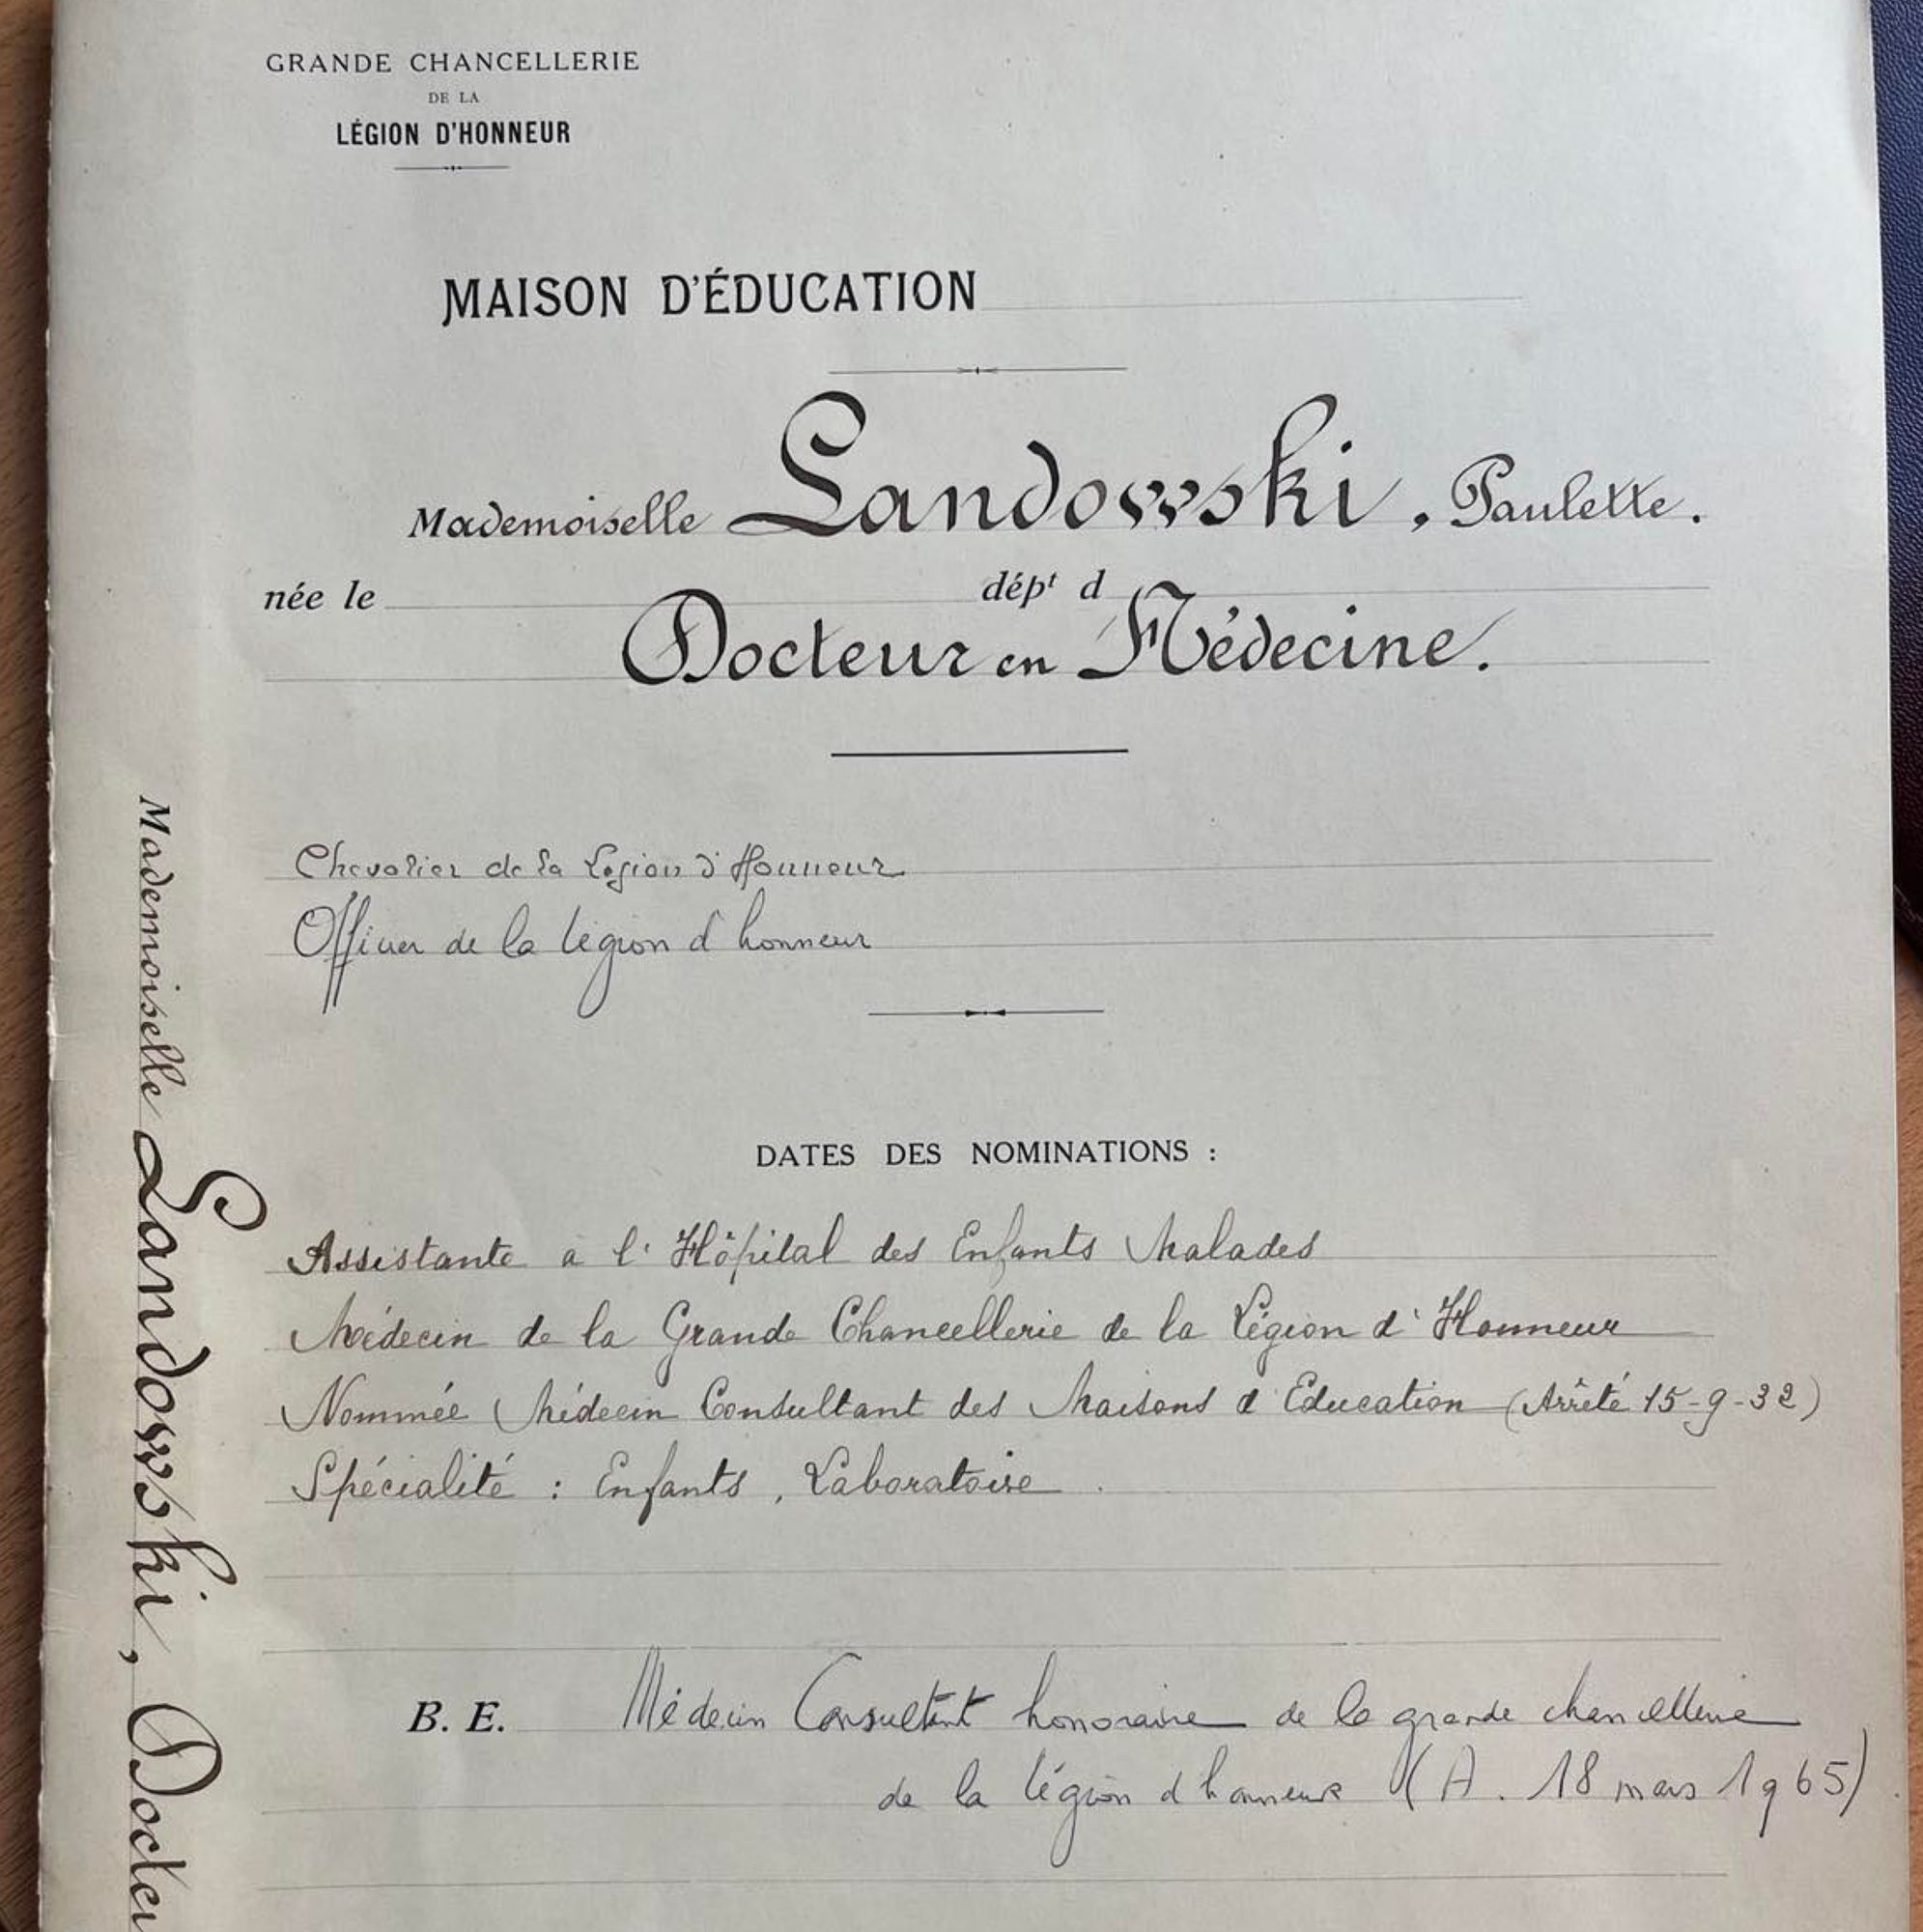 GRANDE CHANCELLERIE
DE LA
LÉGION D'HONNEUR
MAISON D'ÉDUCATION
Mademoiselle Landowski, Paulette.
née le dépt d
Docteur en Médecine.
Chevalier de la Légion d'Honneur
Officier de la légion d honneur
DATES DES NOMINATIONS :
Assistante à l'Hôpital des Enfants Malades
Médecin de la Grande Chancellerie de la Légion d'Honneur
Nommée Médecin Consultant des Maisons d'Education (Arrêté 15-9-32)
Spécialité : Enfants, Laboratoire.
B. E. Médecin Consultant honoraire de la grande chancellerie
de la légion d honneur (A. 18 mars 1965)
Mademoiselle Landowski, Docteu